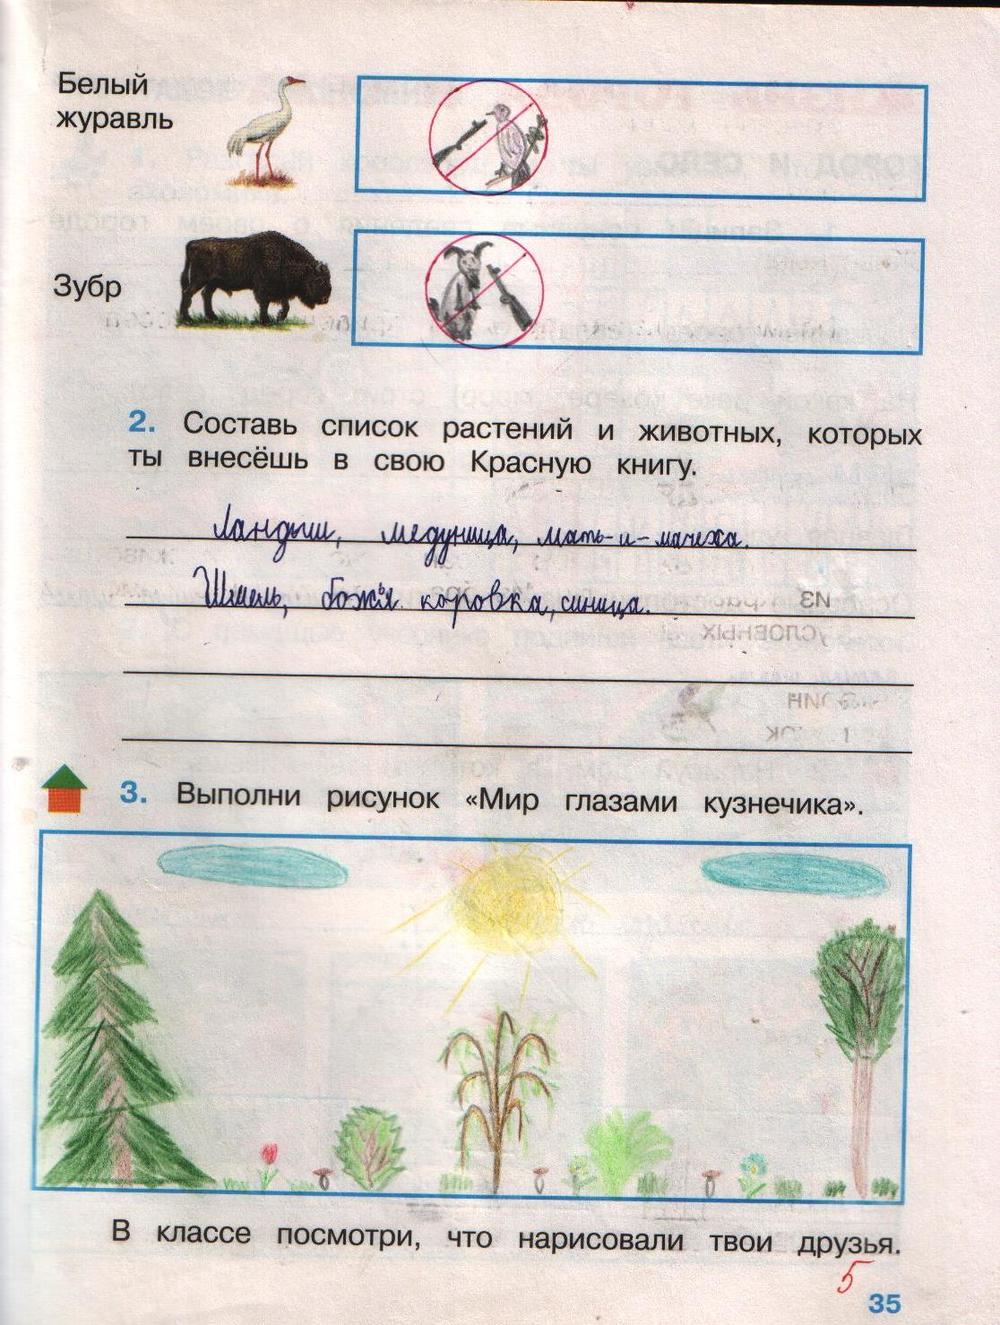 Белый
журавль
Зубр
2. Составь список растений и животных, которых
ты внесёшь в свою Красную книгу.
Ландыш, медуница, мать-и-мачеха.
Шмель, божья коровка, синица.
3. Выполни рисунок «Мир глазами кузнечика».
В классе посмотри, что нарисовали твои друзья.
5
35